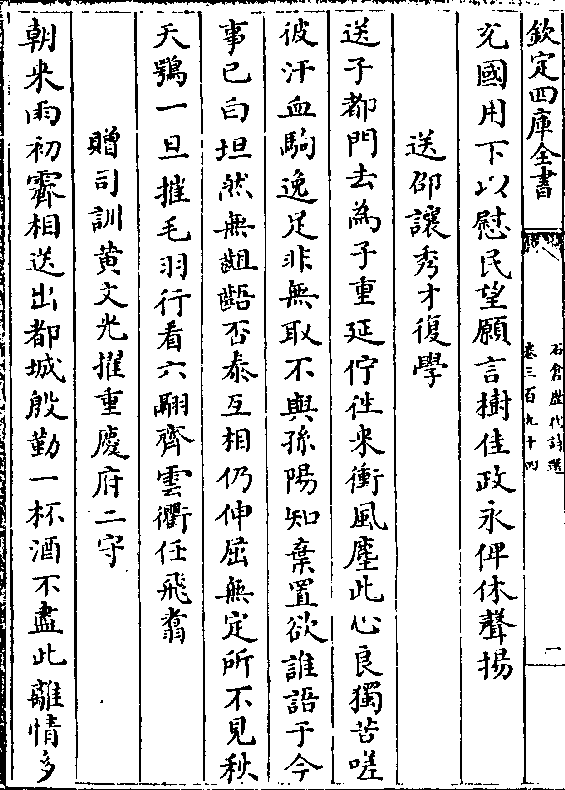 欽定四庫全書
石倉歷代詩選
卷三百九十四
二
充國用下以慰民望願言樹佳政永俾休聲揚
送邵讓秀才復學
送子都門去為子重延佇徃来衝風塵此心良獨苦嗟
彼汗血駒逸足非無取不與孫陽知棄置欲誰語于今
事已白坦然無齟齬否泰互相仍伸屈無定所不見秋
天鶚一旦摧毛羽行看六翮齊雲衢任飛翥
贈司訓黄文光擢重慶府二守
朝来雨初霽相送出都城殷勤一杯酒不盡此離情多